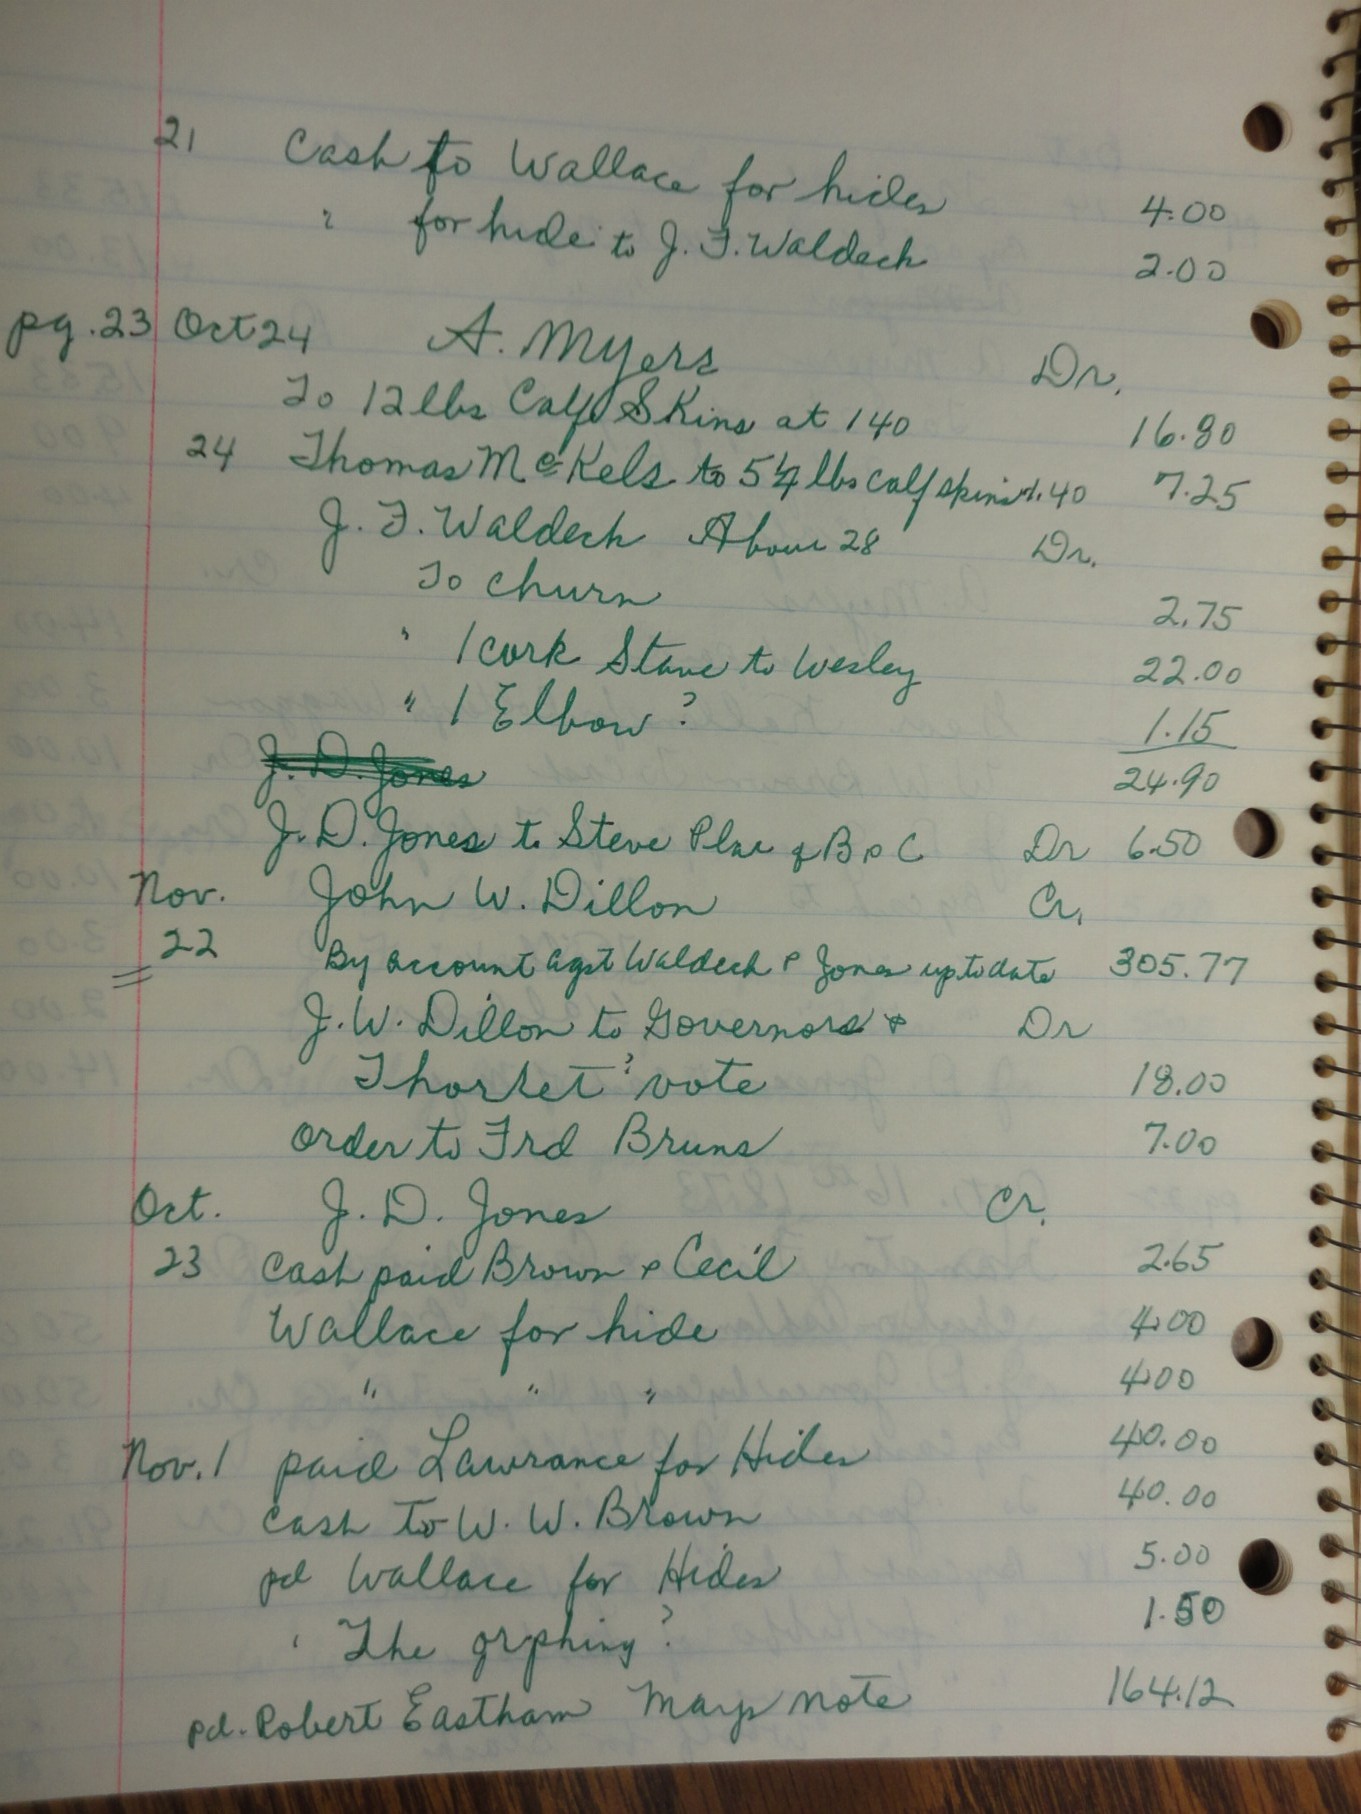 21 Cash to Wallace for hides 4.00
" for hide to J. F. Waldeck 2.00
pg. 23 Oct 24 A. Myers Dr.
To 12 lbs Calf Skins at 140 16.80
24 Thomas McKels to 5 1/4 lbs calf skins 1.40 7.25
J. F. Waldeck About 28 Dr.
To churn 2.75
" 1 cork Stave to Wesley 22.00
" 1 Elbow? 1.15
24.90
J. D. Jones
J. D. Jones to Steve Dr 6.50
Nov. John W. Dillon Cr.
22 By account agst Waldeck & Jones up to date 305.77
J. W. Dillon to Governors & Dr
vote 18.00
order to Frd Bruns 7.00
Oct. J. D. Jones Cr.
23 Cash paid Brown & Cecil 2.65
Wallace for hide 4.00
" " " 4.00
Nov. 1 paid Lawrance for Hides 40.00
cash to W. W. Brown 40.00
pd Wallace for Hides 5.00
" The grphing? 1.50
pd. Robert Eastham Mays note 164.12